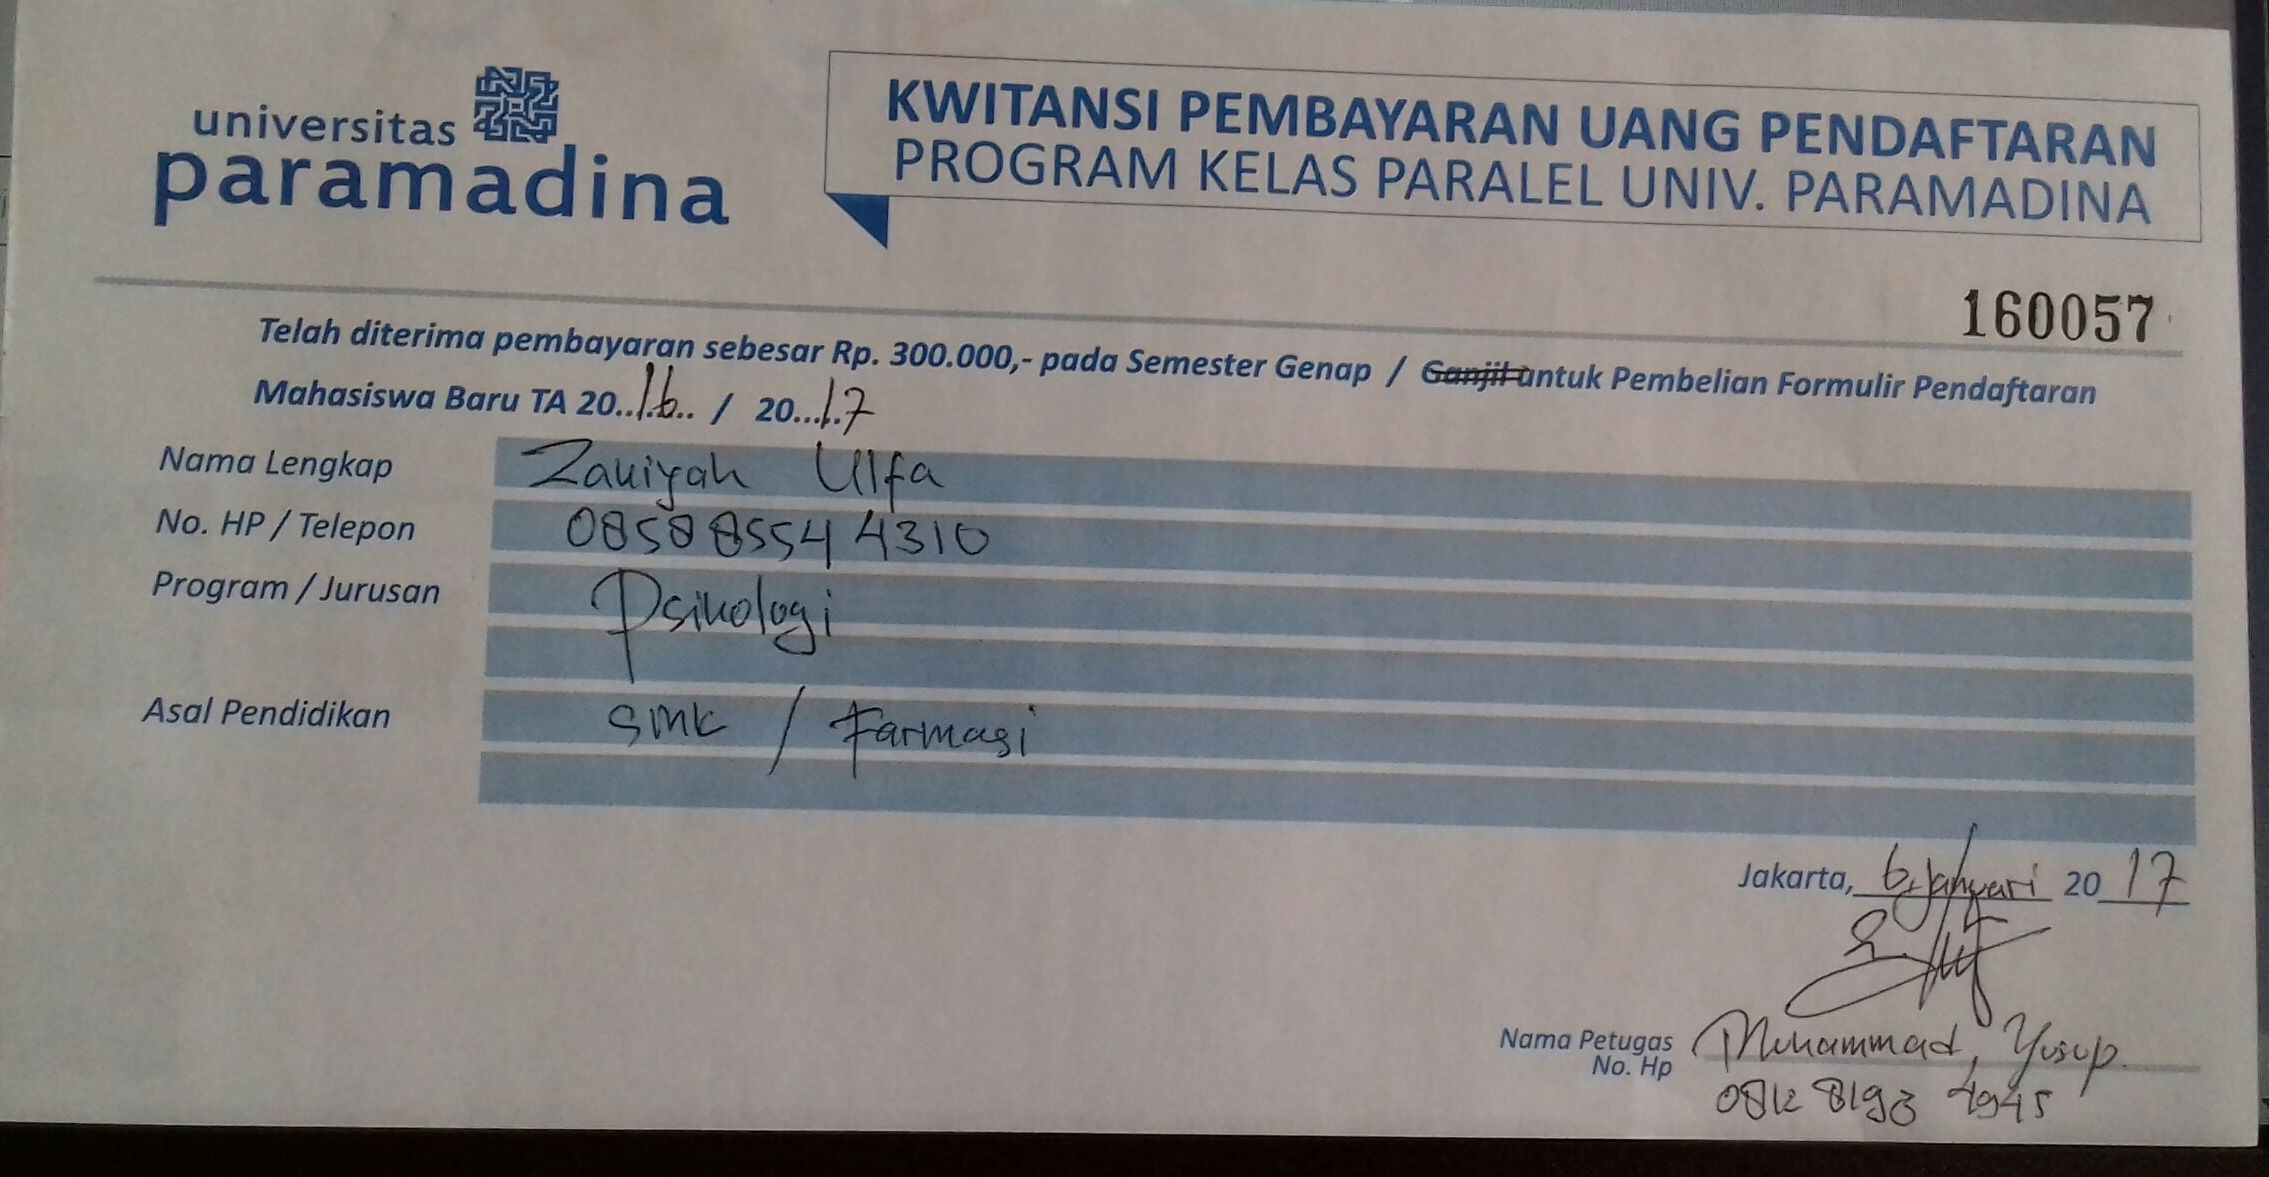 universitas
paramadina
KWITANSI PEMBAYARAN UANG PENDAFTARAN
PROGRAM KELAS PARALEL UNIV. PARAMADINA
160057
Telah diterima pembayaran sebesar Rp. 300.000,- pada Semester Genap / Ganjil untuk Pembelian Formulir Pendaftaran
Mahasiswa Baru TA 20..16.. / 20...17
Nama Lengkap Zauiyah Ulfa
No. HP / Telepon 085885544310
Program / Jurusan Psikologi
Asal Pendidikan SMK / Farmasi
Jakarta, 6 Januari 2017
Nama Petugas Muhammad Yusup.
No. Hp 0812 8193 4945